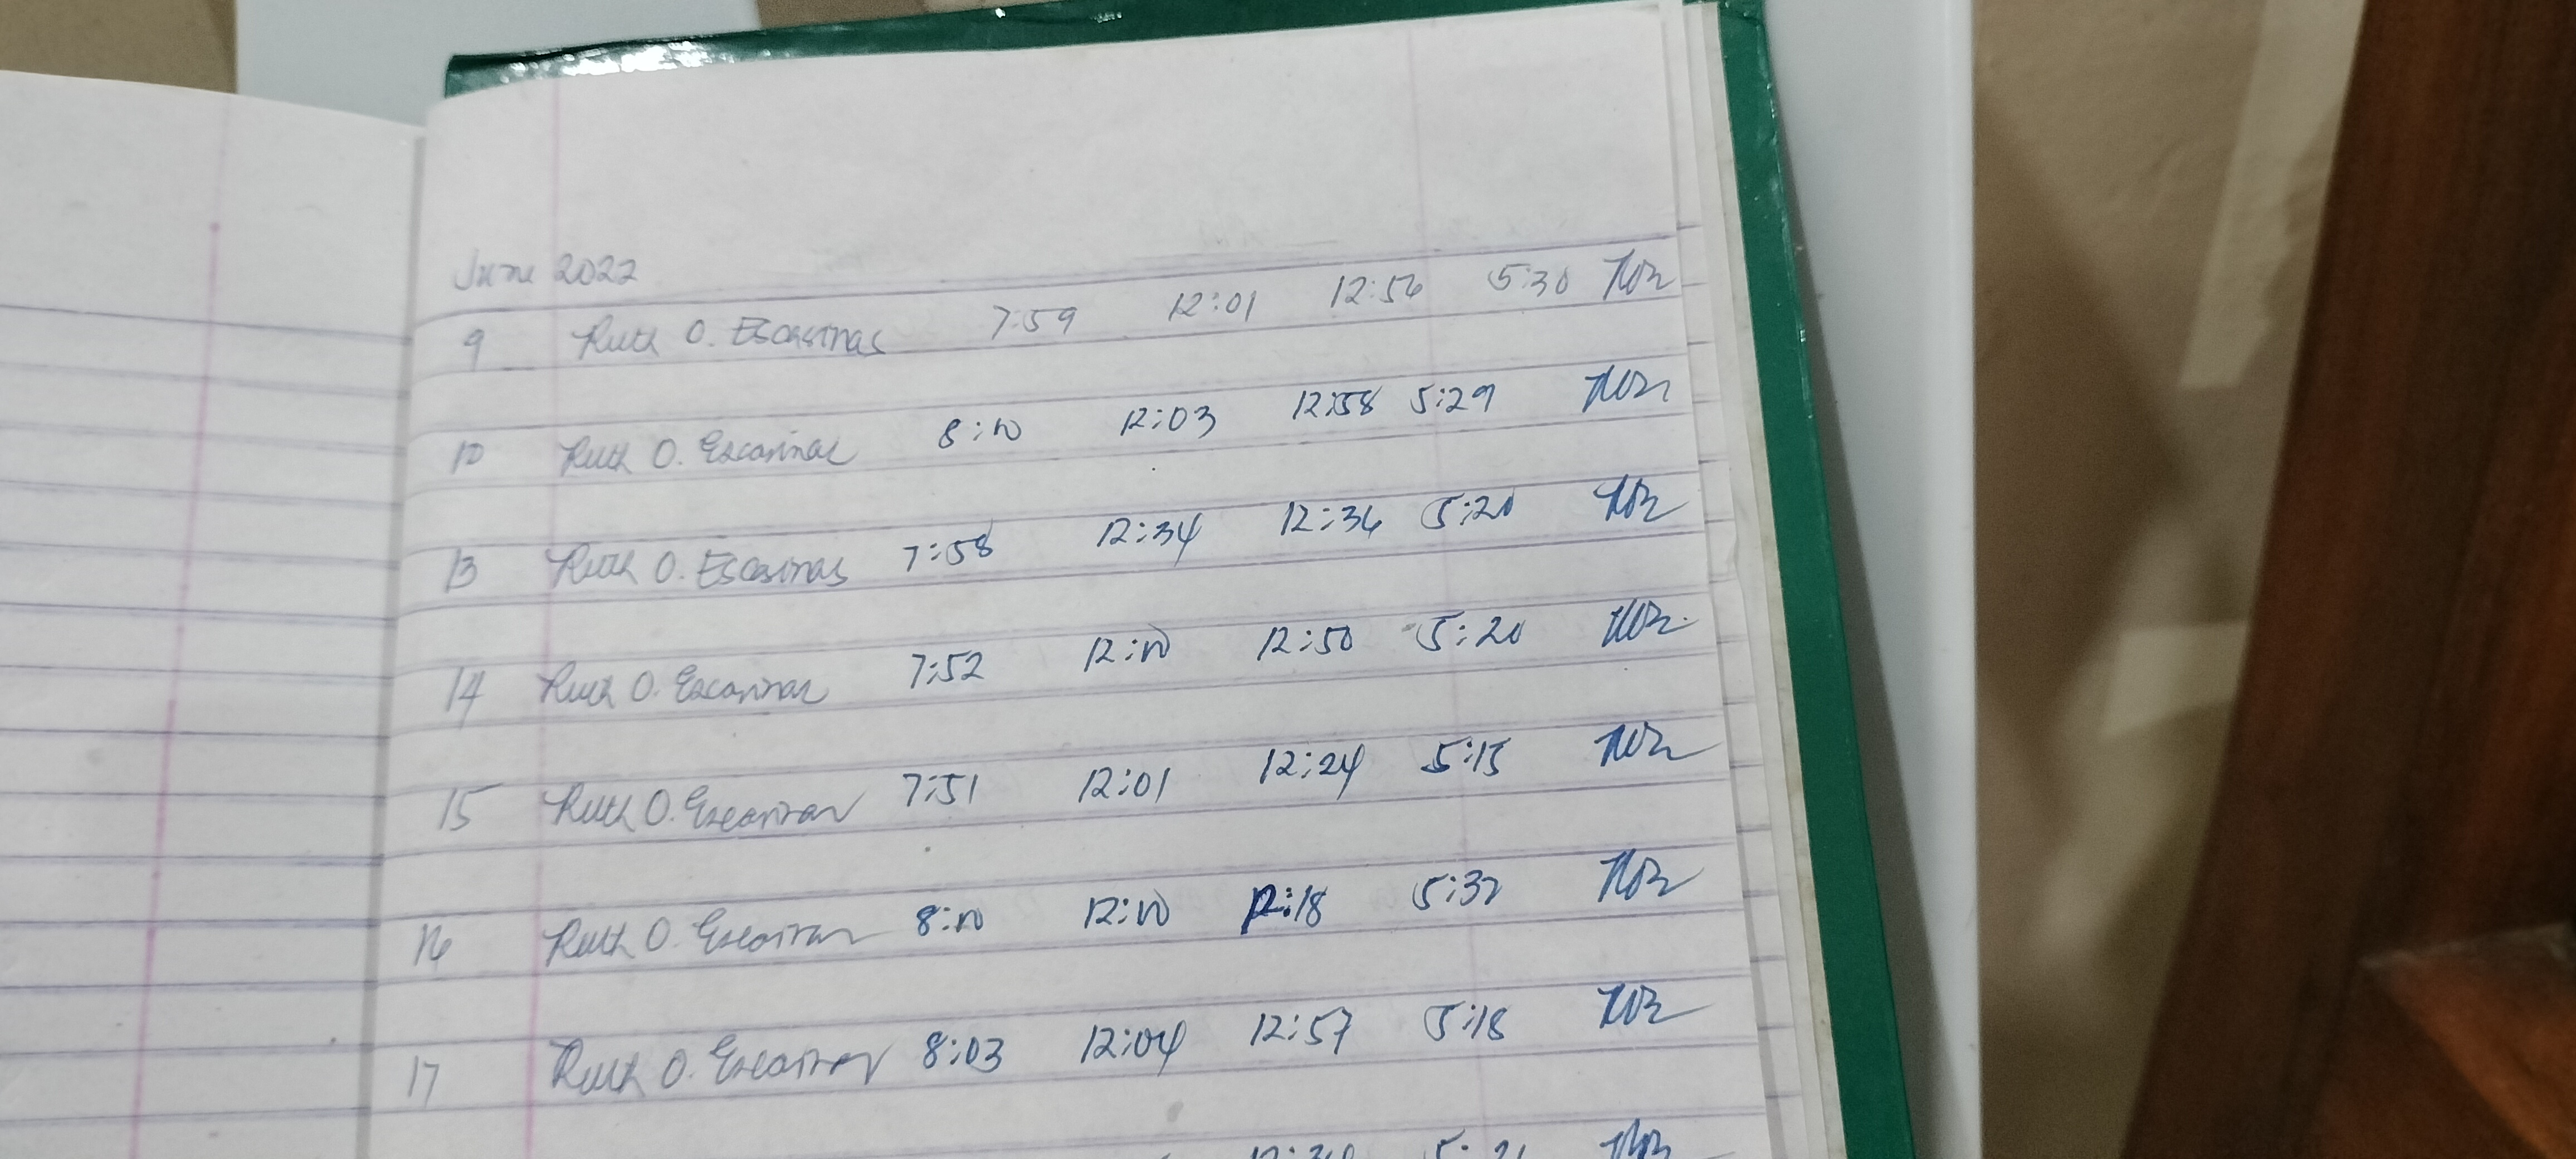 June 2022
9 Ruth O. Escasinas 7:59 12:01 12:56 5:30
10 Ruth O. Escasinas 8:10 12:03 12:58 5:29
13 Ruth O. Escasinas 7:58 12:34 12:36 5:20
14 Ruth O. Escasinas 7:52 12:10 12:50 5:20
15 Ruth O. Escasinas 7:51 12:01 12:24 5:15
16 Ruth O. Escasinas 8:10 12:10 12:18 5:32
17 Ruth O. Escasinas 8:03 12:04 12:57 5:18